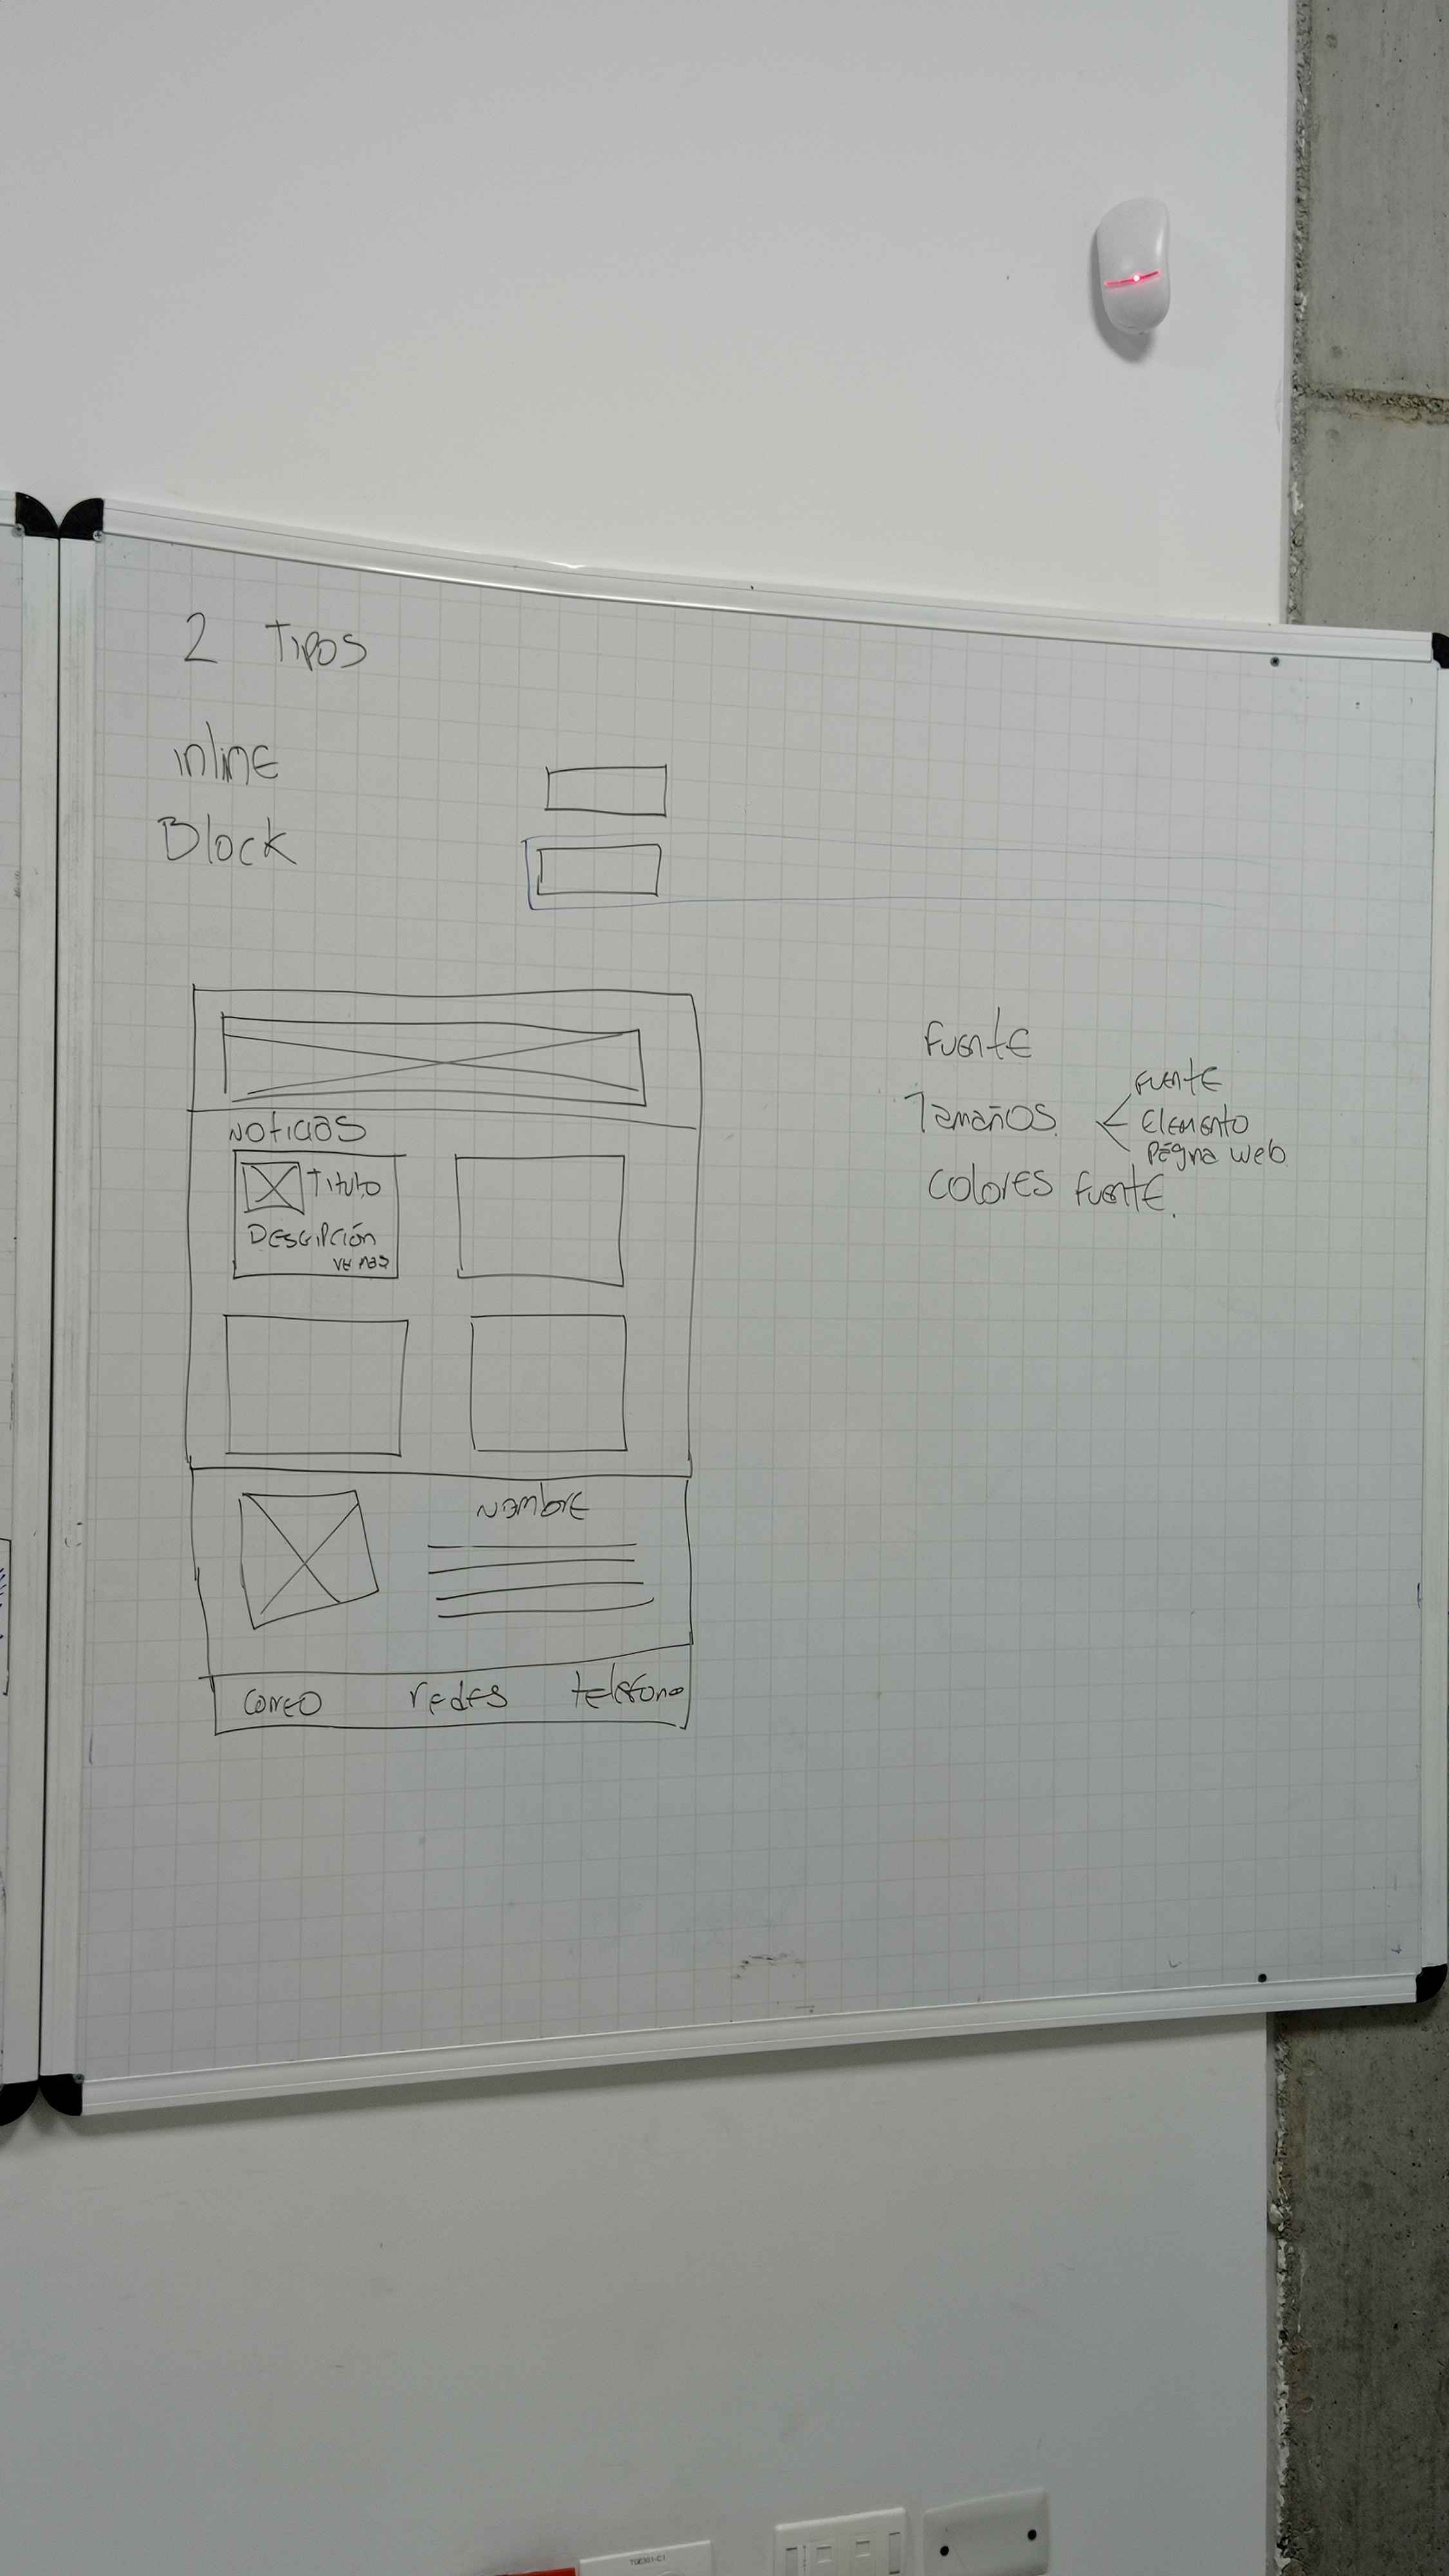 2 Tipos
inline
Block
Noticias
Titulo
Descripción
ver mas
Nombre
Correo
redes
telefono
Fuente
Tamaños
Fuente
Elemento
Página web
Colores fuente.